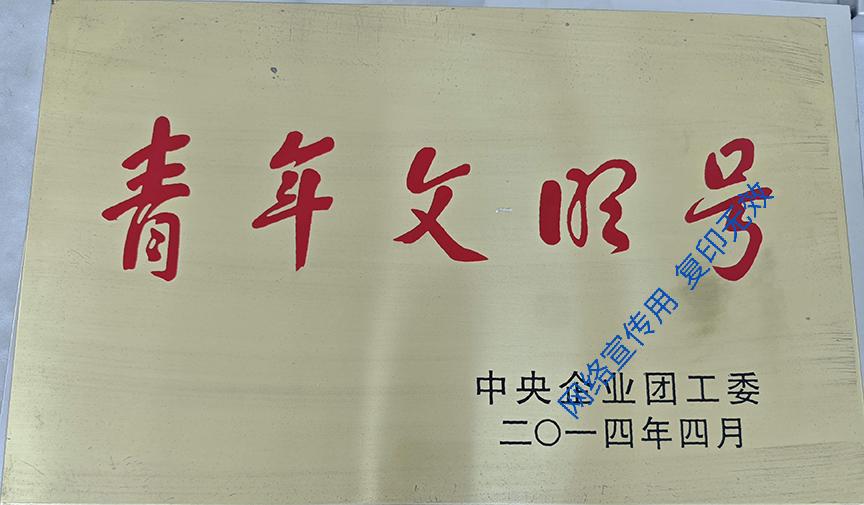 青年文明号
中央企业团工委
二〇一四年四月
网络宣传用 复印无效